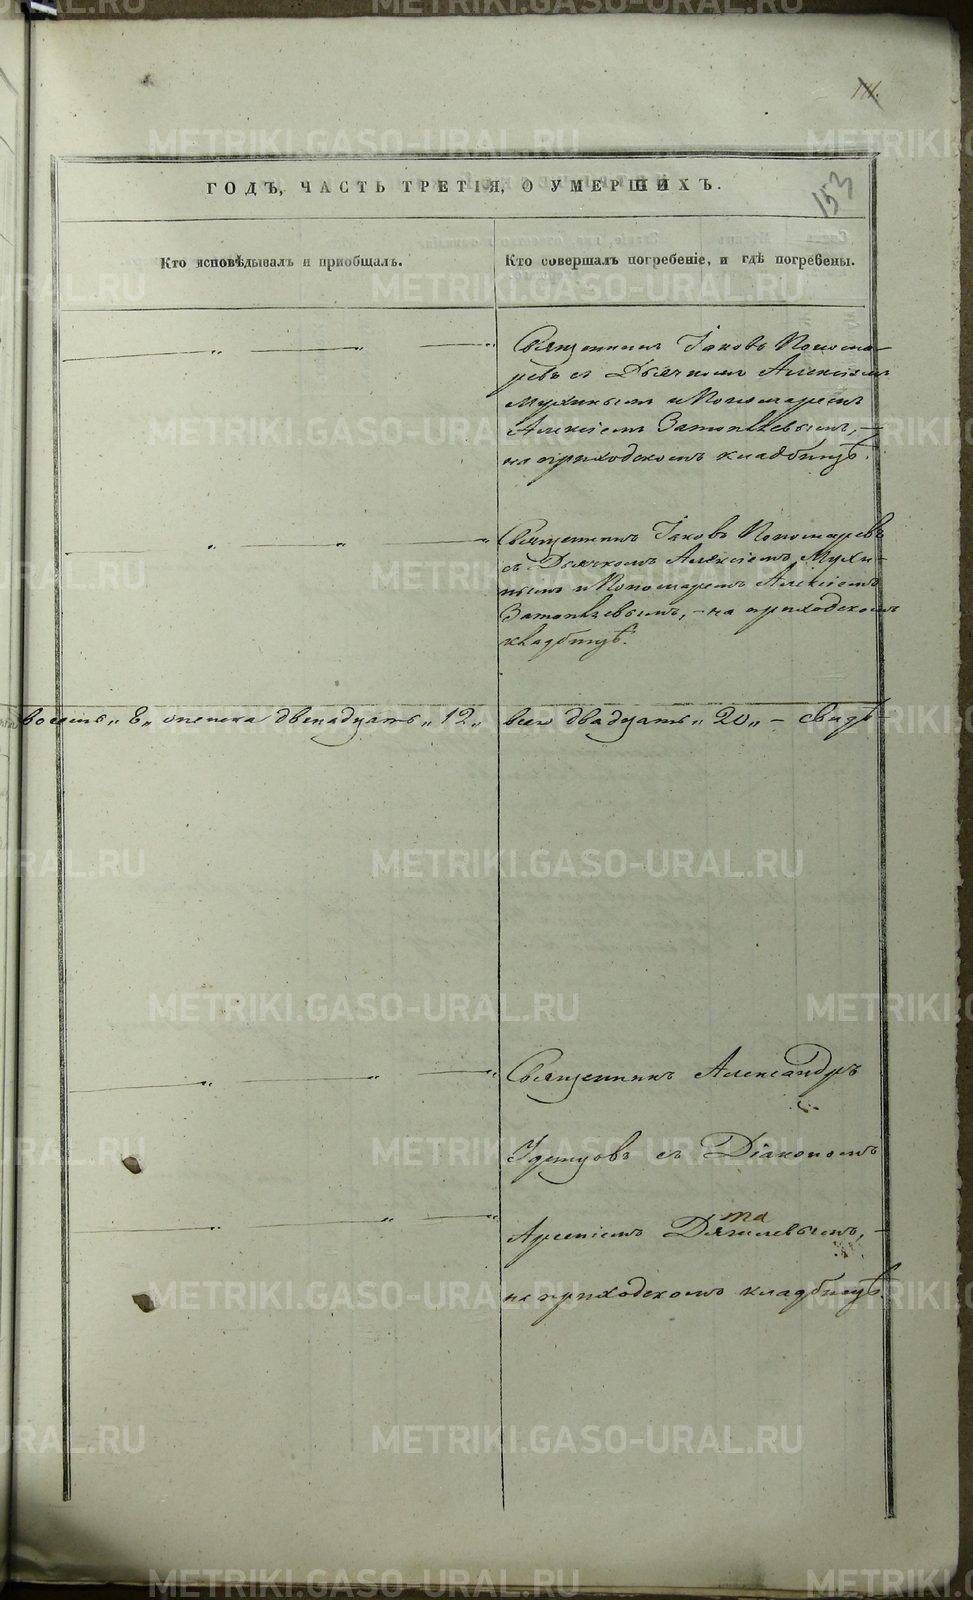 111.
153
ГОДЪ, ЧАСТЬ ТРЕТІЯ, О УМЕРШИХЪ.
Кто исповѣдывалъ и пріобщалъ.
Кто совершалъ погребеніе, и гдѣ погребены.
Священникъ Іаковъ Понома-
ревъ съ Дьячкомъ Алексіемъ
Мухинымъ и Пономаремъ
Алексіемъ Затопляевымъ, —
на приходскомъ кладбищѣ.
Священникъ Іаковъ Пономаревъ
съ Дьячкомъ Алексіемъ Мухи-
нымъ и Пономаремъ Алексіемъ
Затопляевымъ, – на приходскомъ
кладбищѣ.
восемь „ 8 „ женска двенадцать „ 12 „ всего двадцать „ 20 „ – свидѣ
Священникъ Александръ
съ Діакономъ
Арсеніемъ
на приходскомъ кладбищѣ.
METRIKI.GASO-URAL.RU